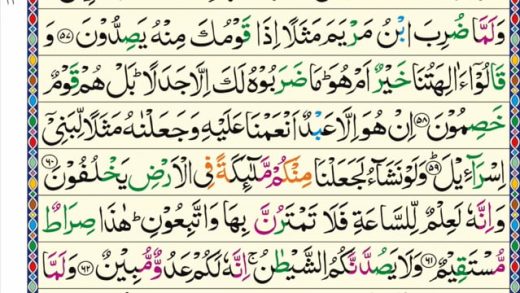 وَلَمَّا ضُرِبَ ابْنُ مَرْيَمَ مَثَلًا اِذَا قَوْمُكَ مِنْهُ يَصِدُّوْنَ ۵۷ وَ
قَالُوْٓا ءَاٰلِهَتُنَا خَيْرٌ اَمْ هُوَ ؕ مَا ضَرَبُوْهُ لَكَ اِلَّا جَدَلًا ؕ بَلْ هُمْ قَوْمٌ
خَصِمُوْنَ ۵۸ اِنْ هُوَ اِلَّا عَبْدٌ اَنْعَمْنَا عَلَيْهِ وَجَعَلْنٰهُ مَثَلًا لِّبَنِيْٓ
اِسْرَآءِيْلَ ؕ ۵۹ وَلَوْ نَشَآءُ لَجَعَلْنَا مِنْكُمْ مَّلٰٓئِكَةً فِي الْاَرْضِ يَخْلُفُوْنَ ۶۰
وَاِنَّهٗ لَعِلْمٌ لِّلسَّاعَةِ فَلَا تَمْتَرُنَّ بِهَا وَاتَّبِعُوْنِ ؕ هٰذَا صِرَاطٌ
مُّسْتَقِيْمٌ ۶۱ وَلَا يَصُدَّنَّكُمُ الشَّيْطٰنُ ۚ اِنَّهٗ لَكُمْ عَدُوٌّ مُّبِيْنٌ ۶۲ وَلَمَّا